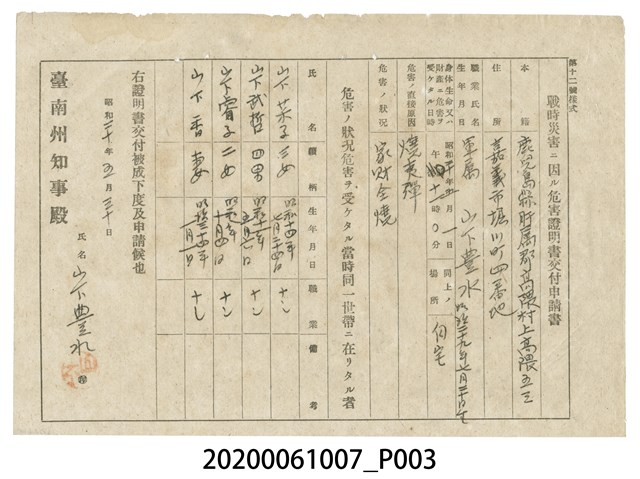 第十二號樣式
戰時災害ニ因ル危害證明書交付申請書
本籍 鹿児島縣肝属郡高隈村上高隈五三
住所 嘉義市堀川町四番地
職業氏名生年月日 軍属 山下豊水 明治三十九年七月三十日生
身体生命又ハ財產ニ危害ヲ受ケタル日時 昭和二十年五月 一日 午 時〇分 同上ノ場所 自宅
危害ノ直接原因 燒夷彈
危害ノ狀況 家財全燒
危害ノ狀況危害ヲ受ケタル當時同一世帶ニ在リタル者
氏名 續柄 生年月日 職業 備考
山下 子 三女 昭和十四年七月二十四日 ナシ
山下武哲 四男 昭和十 年五月六日 ナシ
山下 子 二女 昭和 年 月四日 ナシ
山下香 妻 明治三十四年 月 日 ナシ
右證明書交付被成下度及申請候也
昭和二十年五月三十日
氏名 山下豊水
臺南州知事殿
20200061007_P003